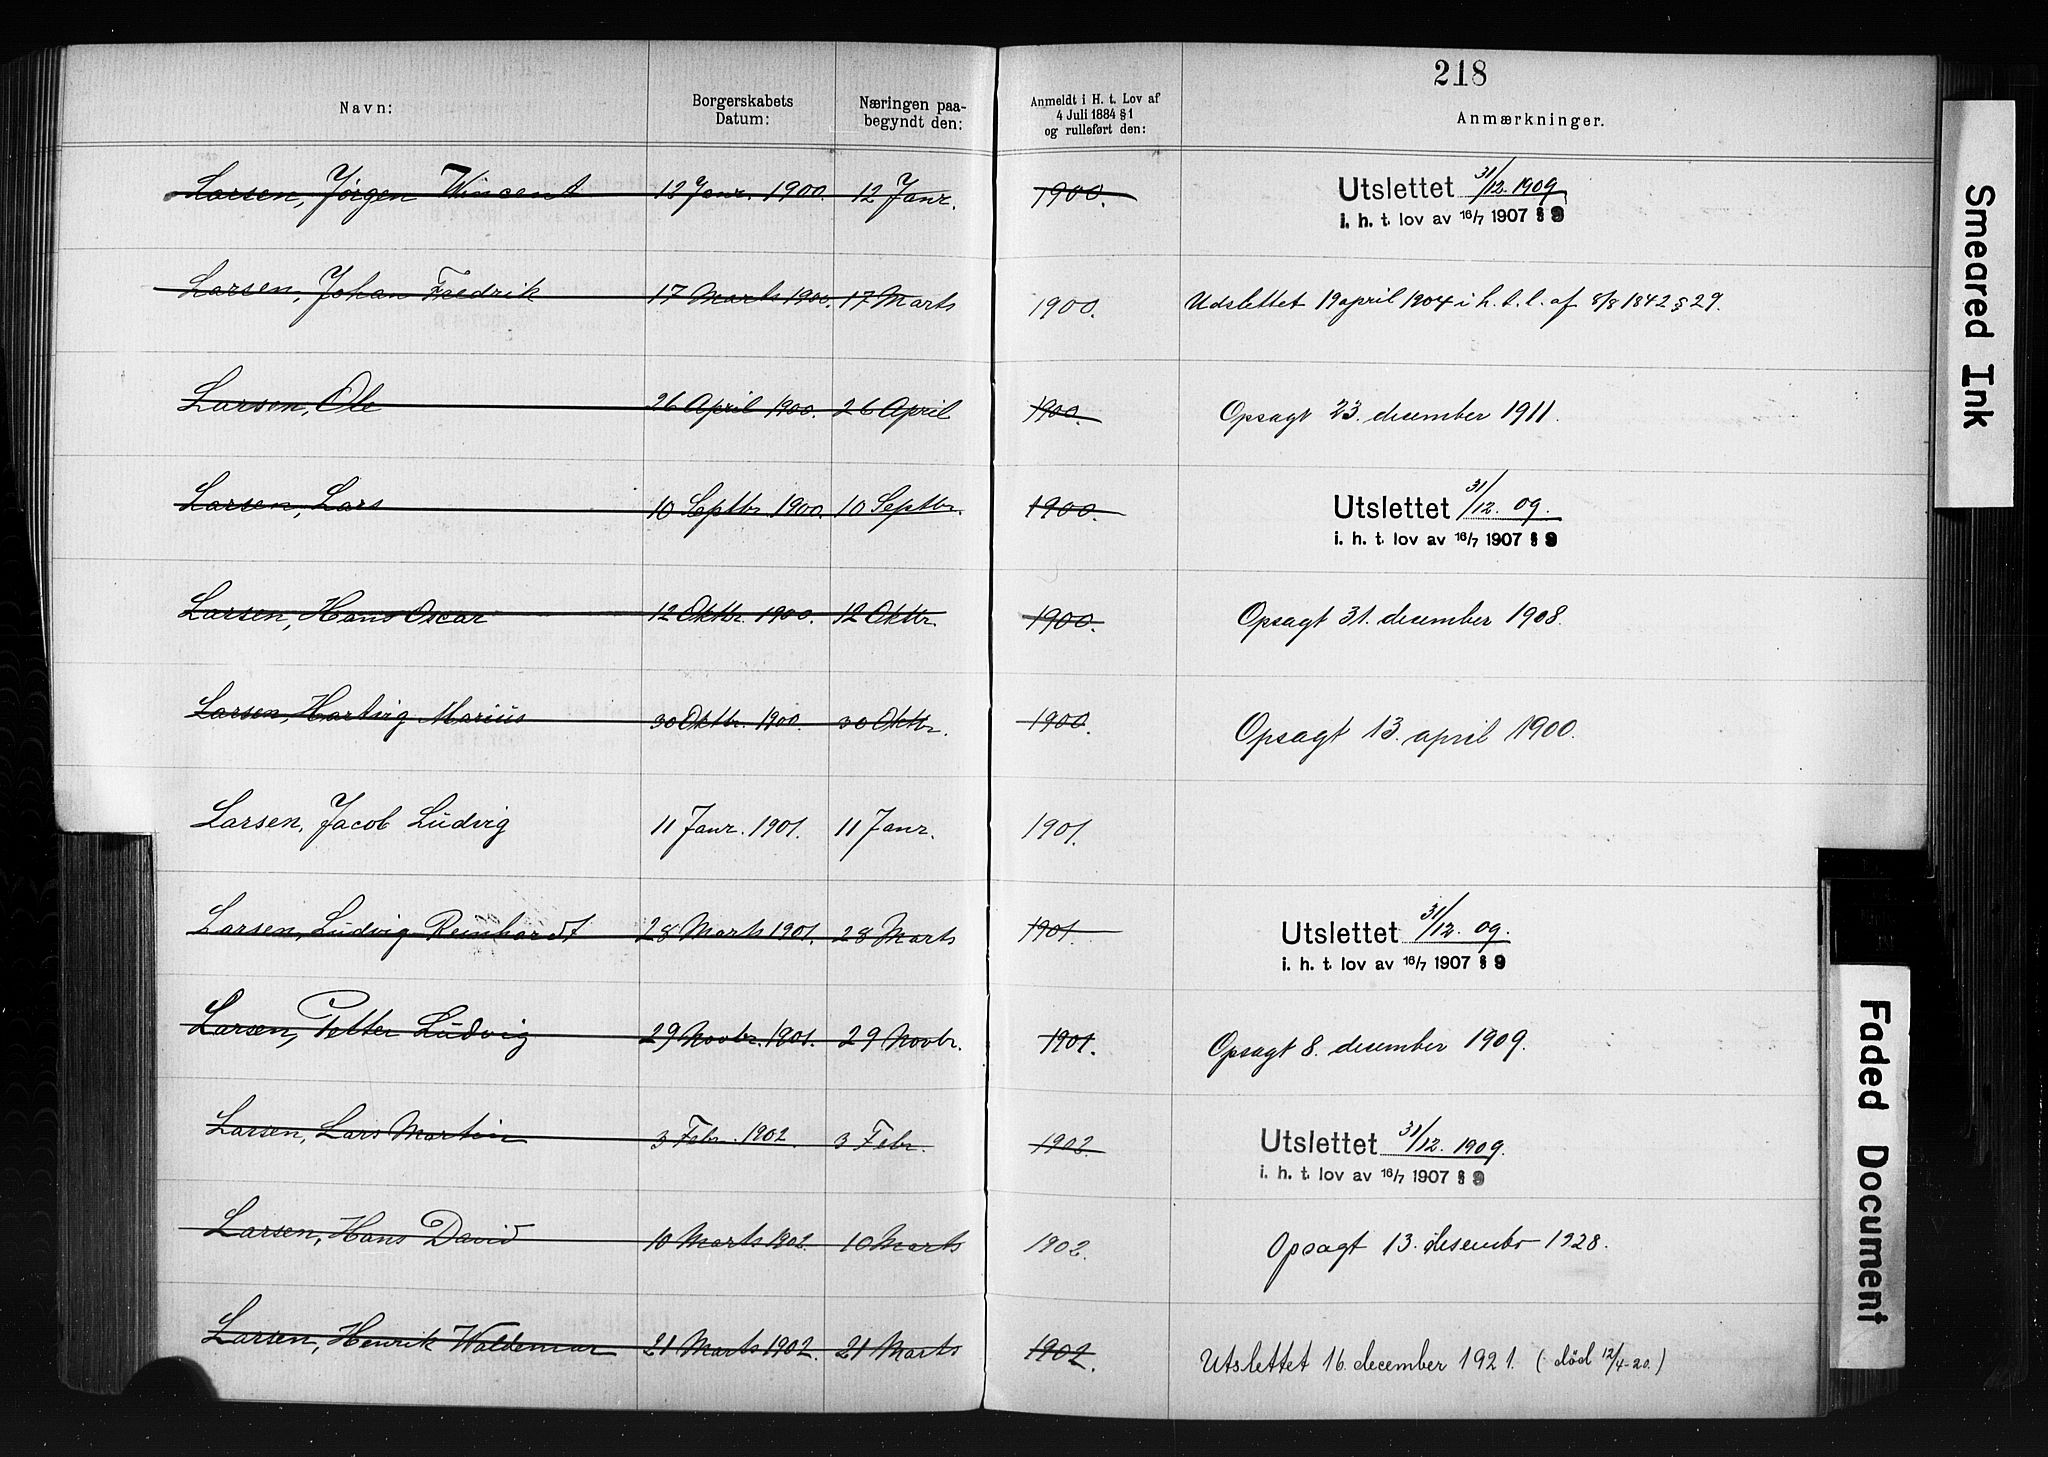 218
Navn: Borgerskabets Datum: Næringen paa- begyndt den: Anmeldt i H. t. Lov af 4 Juli 1884 § 1 og rulleført den: Anmærkninger.
Larsen, Jørgen Wincent 12 Janr. 1900. 12 Janr. 1900. Utslettet 31/12. 1909
i. h. t. lov av 16/7 1907 § 9
Larsen, Johan Fredrik 17 Marts 1900. 17 Marts 1900. Udslettet 19 april 1904 i h. t. l. af 8/8 1842 § 29.
Larsen, Ole 26 April 1900. 26 April 1900. Opsagt 23. december 1911.
Larsen, Lars 10 Septbr. 1900. 10 Septbr. 1900. Utslettet 31/12. 09.
i. h. t. lov av 16/7 1907 § 9
Larsen, Hans Oscar 12 Oktbr. 1900. 12 Oktbr. 1900. Opsagt 31. december 1908.
Larsen, Hartvig Marius 30 Oktbr. 1900. 30 Oktbr. 1900. Opsagt 13. april 1900.
Larsen, Jacob Ludvig 11 Janr. 1901. 11 Janr. 1901.
Larsen, Ludvig Reinhardt 28 Marts 1901. 28 Marts 1901. Utslettet 31/12. 09.
i. h. t. lov av 16/7 1907 § 9
Larsen, Petter Ludvig 29 Novbr. 1901. 29 Novbr. 1901. Opsagt 8. december 1909.
Larsen, Lars Martin 3 Febr. 1902. 3 Febr. 1902. Utslettet 31/12. 1909.
i. h. t. lov av 16/7 1907 § 9
Larsen, Hans David 10 Marts 1902. 10 Marts 1902. Opsagt 13. desembr 1928.
Larsen, Henrik Waldemar 21 Marts 1902. 21 Marts 1902. Utslettet 16. december 1921. (død 12/4-20.)
Smeared Ink
Faded Document